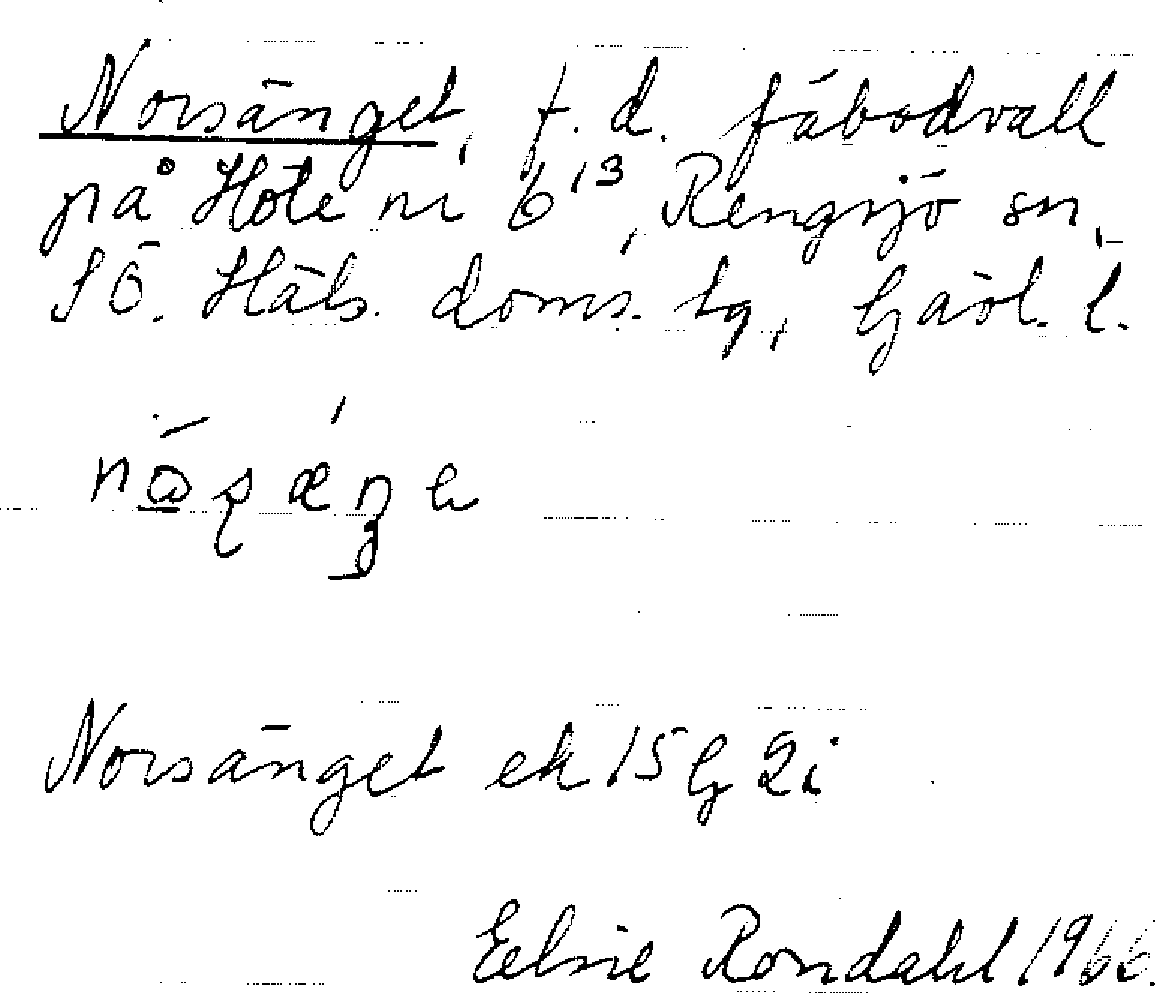 Norsänget, f.d. fäbodvall
på Höle nr 6¹³, Rengsjö sn,
SÖ. Häls. doms. tg, Gävl. l.
Norsänget ek 15G 2i
Elsie Rondahl 1966.